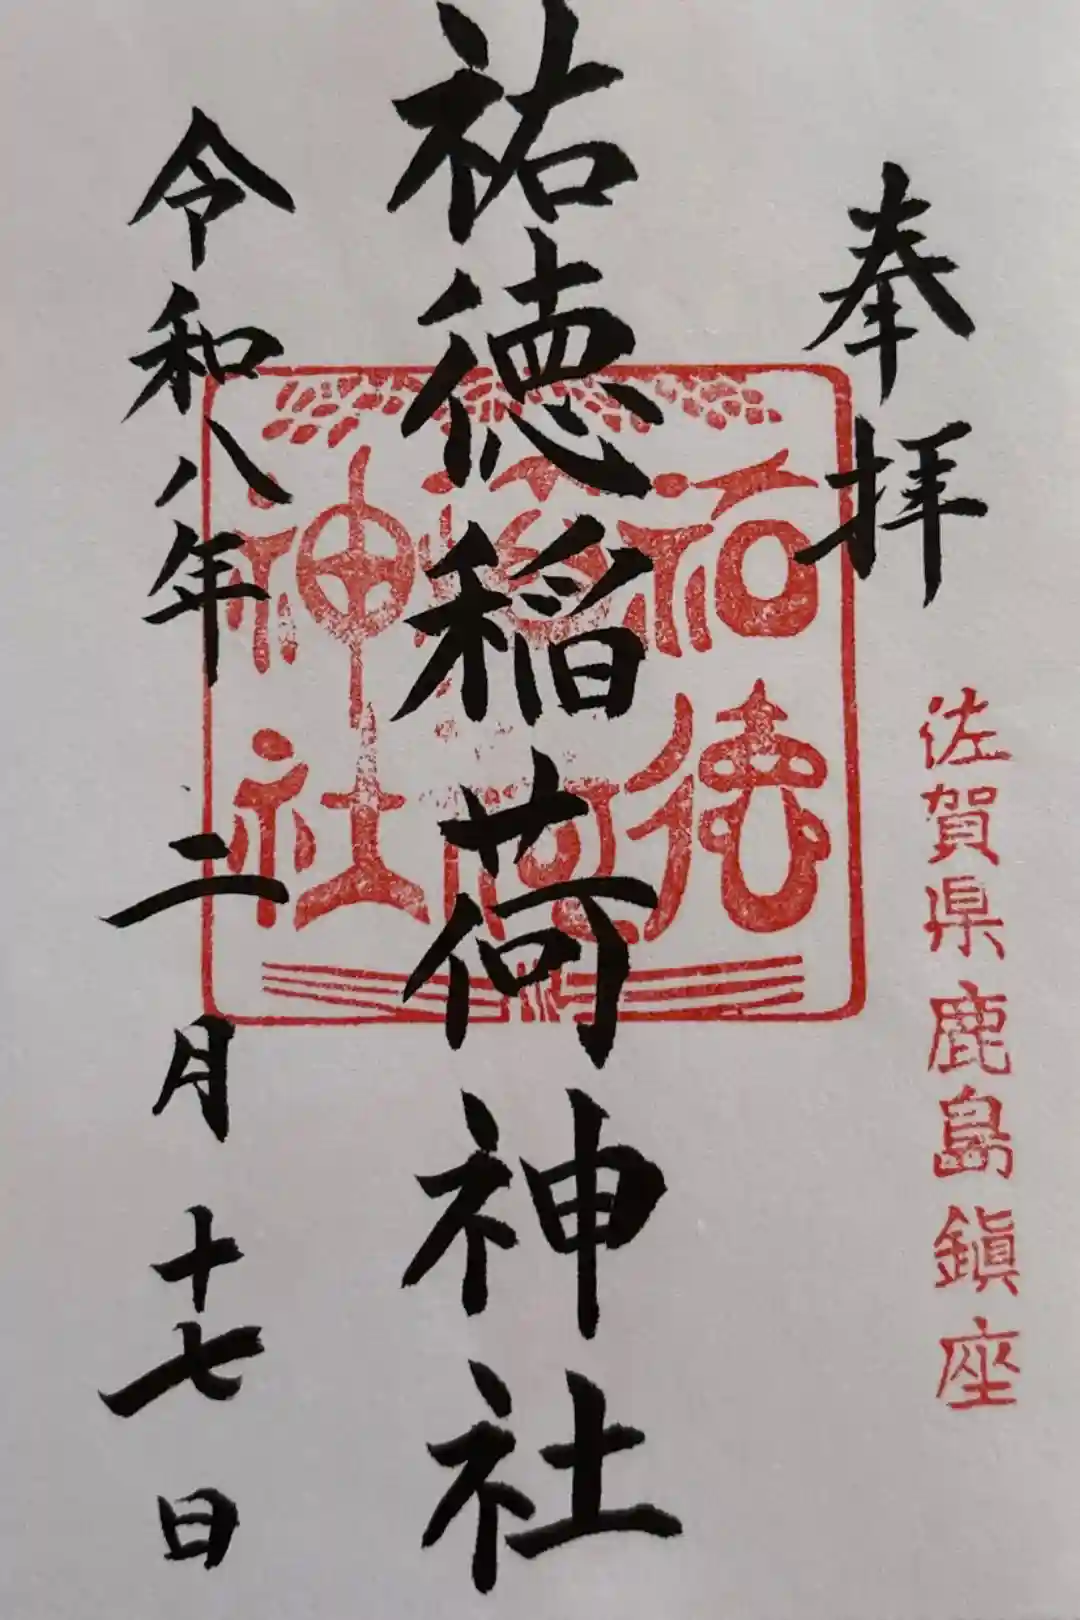 奉拝
佐賀県鹿島鎭座
祐徳稲荷神社
祐徳
稲荷
神社
令和八年二月十七日